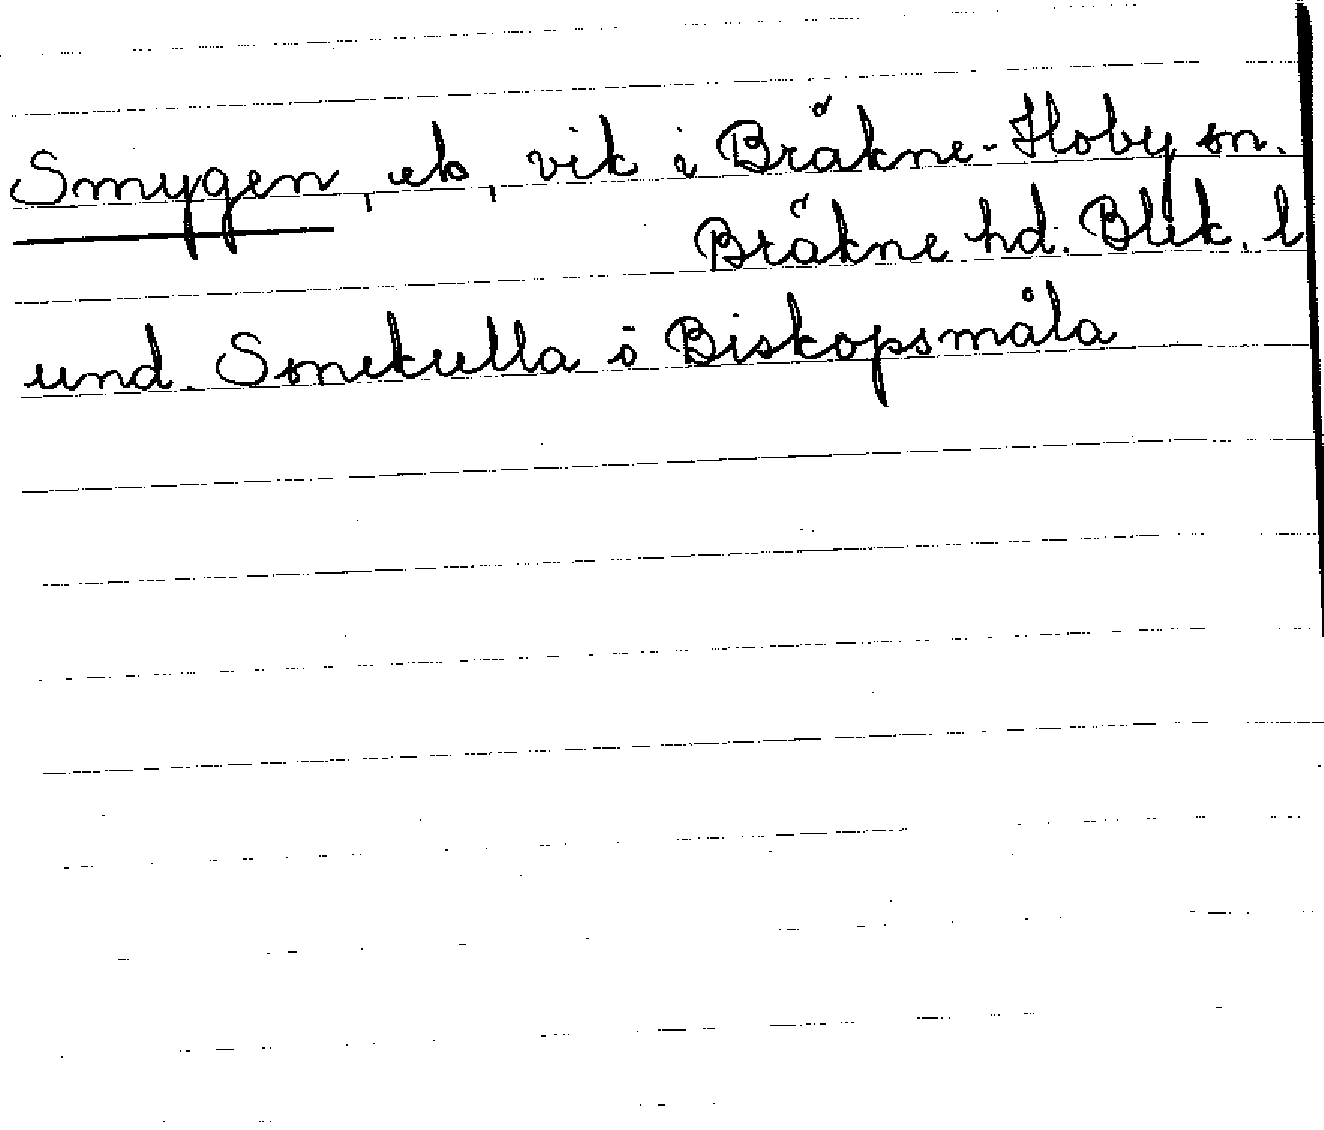 Smygen, ek, vik i Bräkne-Hoby sn.
Bräkne hd. Blek. l
und. Sonekulla o Biskopsmåla